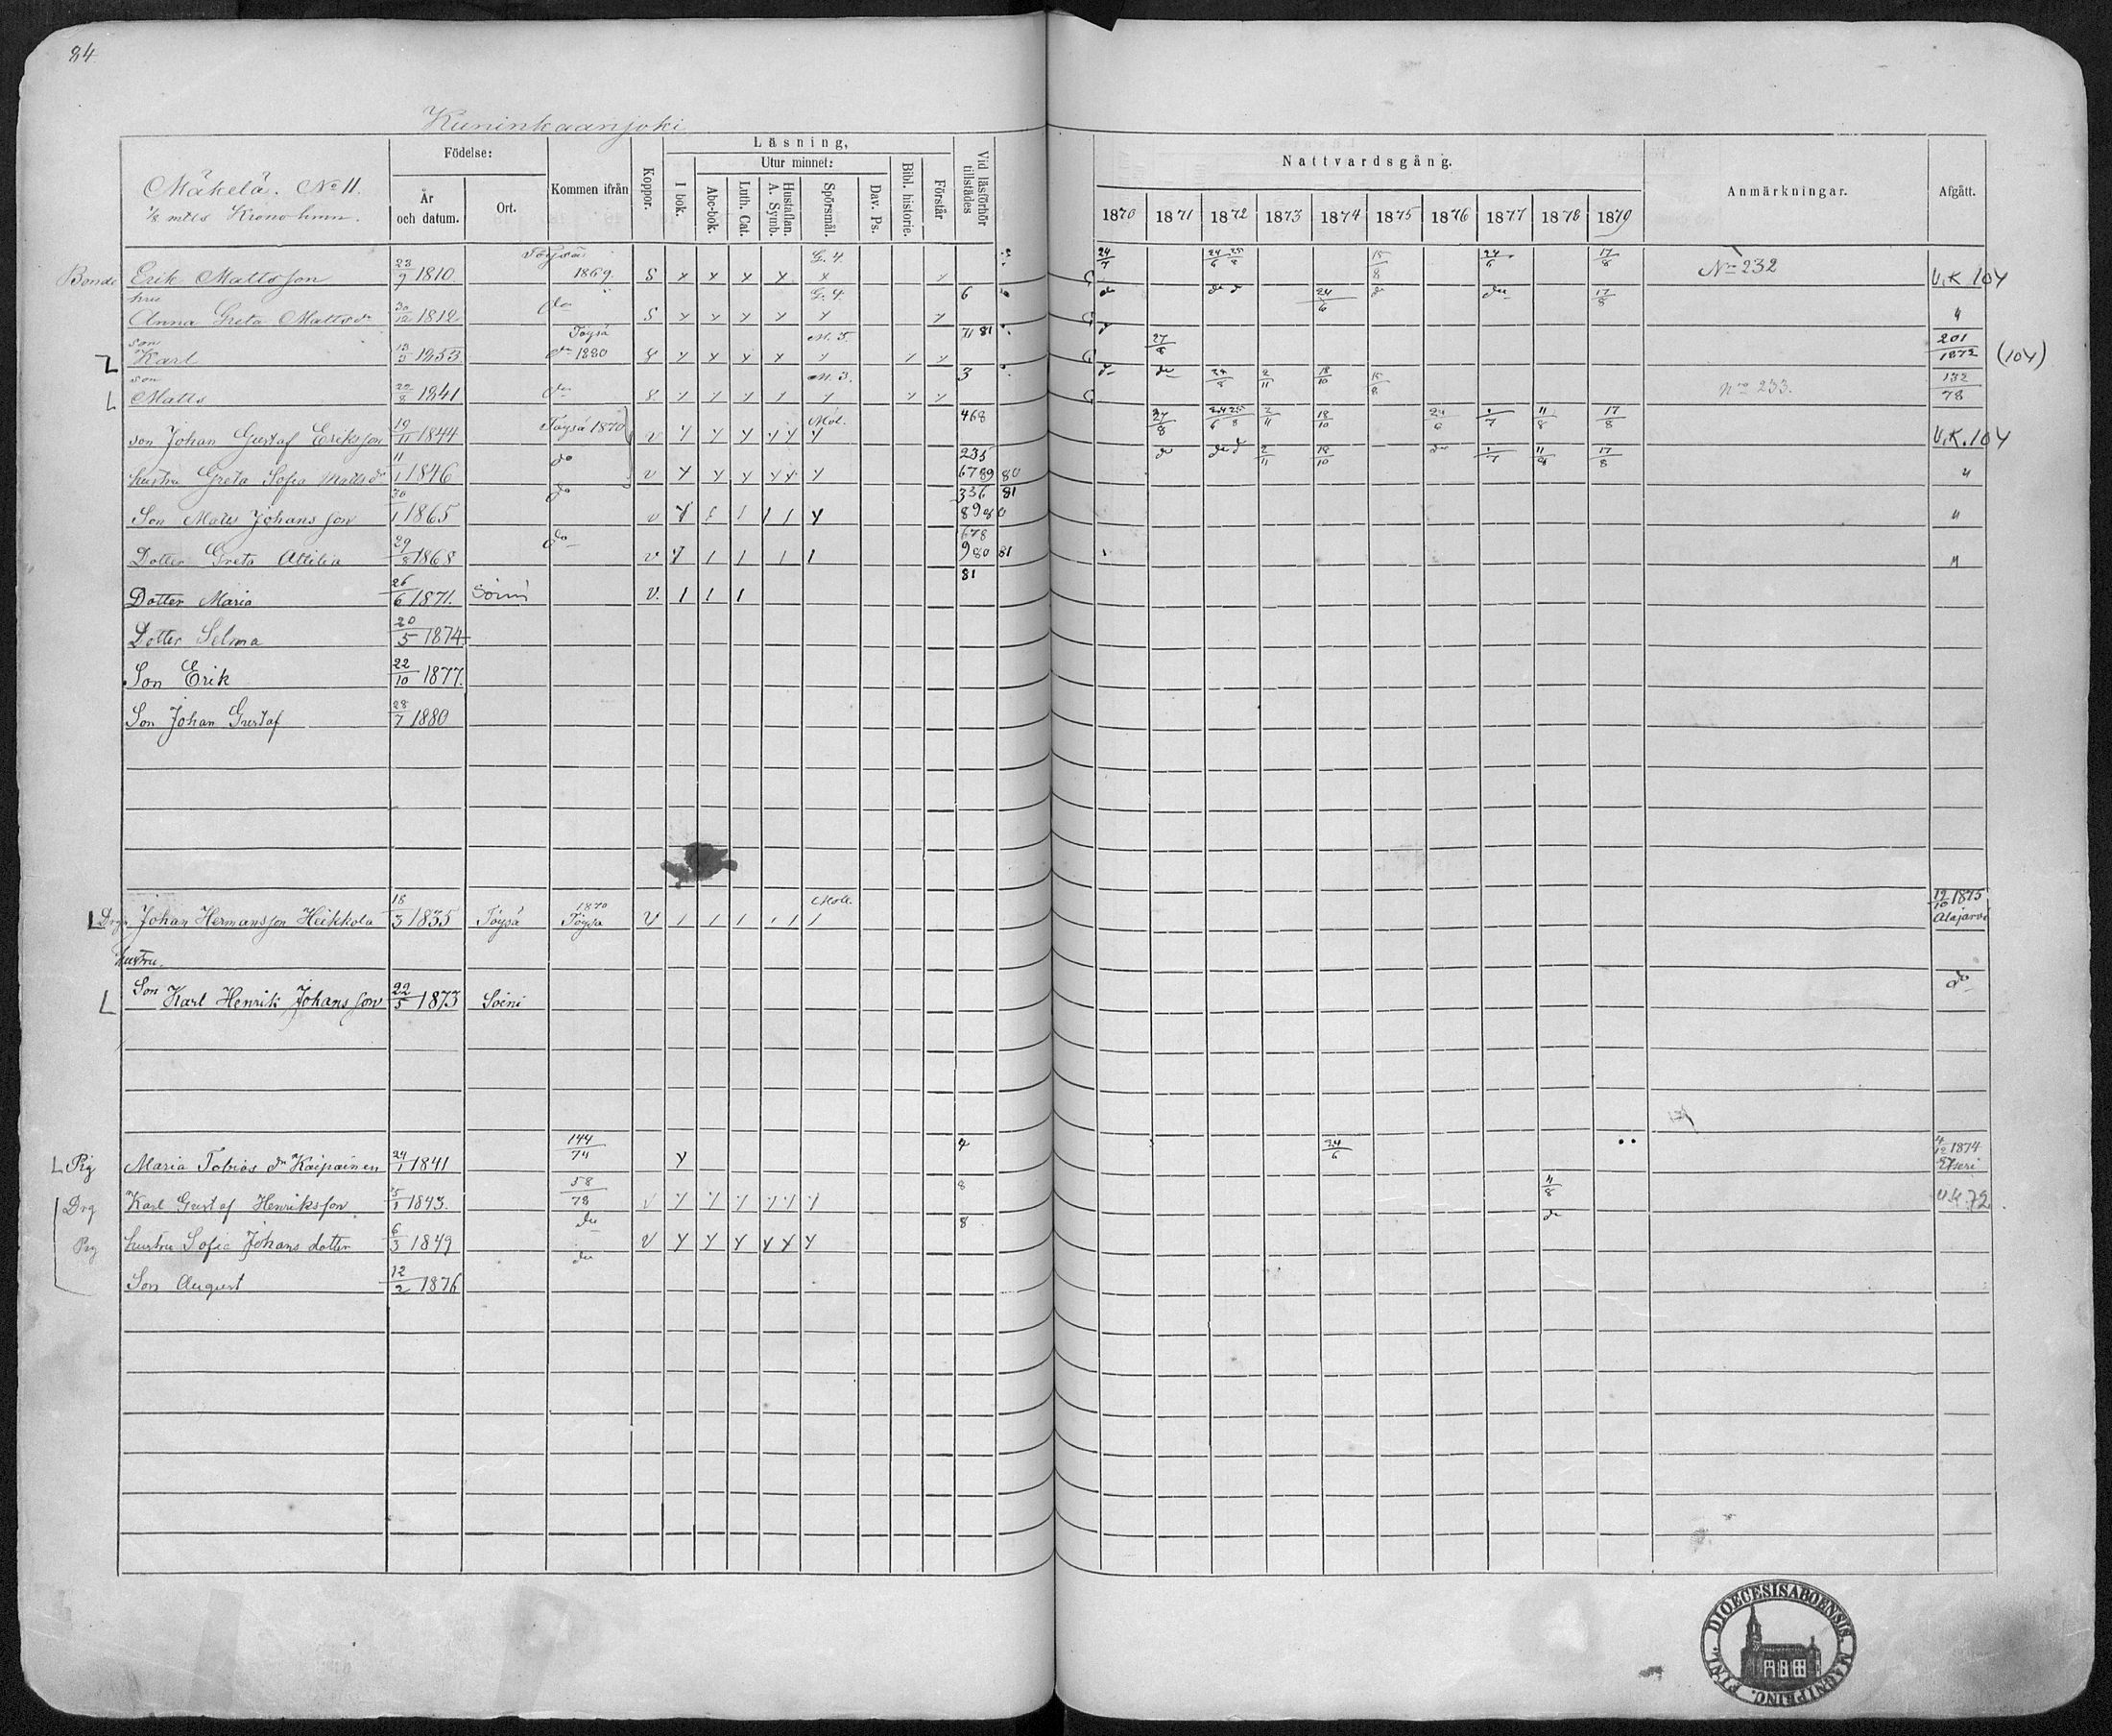 84
Kuninkaanjoki
Mäkelä. No 11.
1/8 mtls Krono hmn.
Födelse:
År och datum.
Ort.
Kommen ifrån
Koppor.
Läsning,
I bok.
Utur minnet:
Abc-bok.
Luth. Cat.
Hustaflan. A. Symb.
Spörsmål.
Dav. Ps.
Bibl. historie.
Förstår
Vid läsförhör tillstädes
Nattvardsgång.
1870 1871 1872 1873 1874 1875 1876 1877 1878 1879
Anmärkningar.
Afgått.
Bonde Erik Mattsson 23/9 1810 Töysä 1869. S G. 4. 24/7 24/6 25/8 15/8 24/6 17/8 No 232 U.K 104
hru Anna Greta Mattsdr 30/12 1812 do S G. 4. 6 do do d 24/6 d do 17/8 "
son Karl 13/5 1853 Töysä do 1880 M. 5. 71 81 d 27/8 201/1872 (104)
son Matts 22/8 1841 do M. 3. 3 d do 24/8 2/11 18/10 15/8 No 233. 132/78
son Johan Gustaf Eriksson 19/11 1844 Töysä 1870 v Mol. 468 27/8 24/6 25/8 2/11 18/10 24/6 1/7 11/8 17/8 U.K. 104
hustru Greta Sofia Matts dr 11/1 1846 do v 235 6789 80 do do d 2/11 18/10 do 1/7 11/8 17/8 "
Son Matts Johansson 30/1 1865 do v 336 81 8980 "
Dotter Greta Attilia 29/8 1868 do v 678 980 81 "
Dotter Maria 26/6 1871. Soini V. 81
Dotter Selma 20/5 1874
Son Erik 22/10 1877.
Son Johan Gustaf 28/7 1880
Drg. Johan Hermansson Heikkola 18/3 1835 Töysä 1870 Töysa V Moll. 19/10 1875 Alajärvi
hustru.
Son Karl Henrik Johansson 22/5 1873 Soini do
Pig Maria Tobias dr Kaipainen 24/1 1841 144/74 4 24/6 4/12 1874 Etseri
Drg Karl Gustaf Henriksson 5/1 1843. 58/78 v 8 11/8 U.K. 72.
Pig hustru Sofia Johans dotter 6/3 1849 do V 8 do
Son August 12/2 1876 do
FINL. DIOECESIS ABOENSIS MAGNI PRINC.